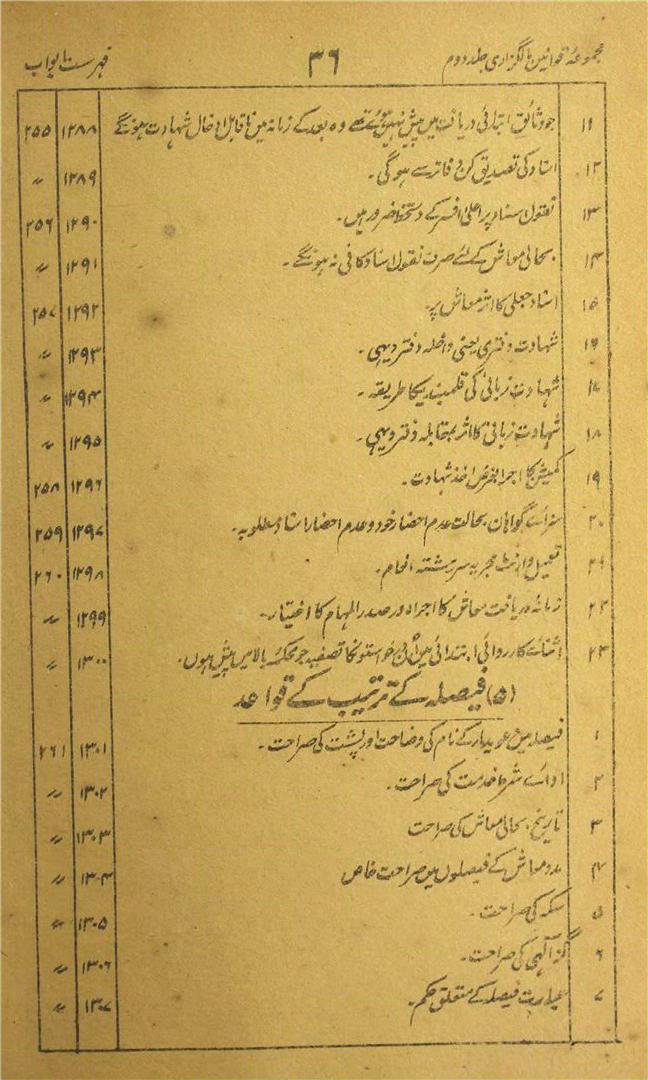 مجموعۂ قوانین مالگزاری جلد دوم ۳۶ فہرست ابواب
۱۱ جو وثائق ابتدائی دریافت میں پیش نہیں ہوئے تھے وہ بعد کے زمانہ میں ناقابل ادخال شہادت ہونگے ۱۲۸۸ ۲۵۵
۱۲ اسناد کی تصدیق کن دفاتر سے ہوگی۔ ۱۲۸۹ ؍؍
۱۳ نقول اسناد پر اعلیٰ افسر کے دستخط ضرور ہیں۔ ۱۲۹۰ ۲۵۶
۱۴ بحالی معاش کے لئے صرف نقول اسناد کافی نہ ہونگے۔ ۱۲۹۱ ؍؍
۱۵ اسناد جعلی کا اثر معاش پر ۱۲۹۲ ۲۵۷
۱۶ شہادت دفتری یعنی داخلہ دفتر دیہی۔ ۱۲۹۳ ؍؍
۱۷ شہادت زبانی کی قلمبندی کا طریقہ۔ ۱۲۹۴ ؍؍
۱۸ شہادت زبانی کا اثر بمقابلہ دفتر دیہی۔ ۱۲۹۵ ؍؍
۱۹ کمیشن کا اجرا بغرض اخذ شہادت۔ ۱۲۹۶ ۲۵۸
۲۰ سزائے گواہان بحالت عدم احضار خود و عدم احضار اسناد مطلوبہ۔ ۱۲۹۷ ۲۵۹
۲۱ تعمیل وارنٹ مجریہ سررشتہ انعام۔ ۱۲۹۸ ۲۶۰
۲۲ زمانہ دریافت معاش کا اجراء اور صدر المہام کا اختیار۔ ۱۲۹۹ ؍؍
۲۳ اثنائے کارروائی ابتدائی میں اُن درخواستونکا تصفیہ جو محکمۂ بالا میں پیش ہوں۔ ۱۳۰۰ ؍؍
(۵) فیصلہ کے ترتیب کے قواعد
۱ فیصلہ میں دعویدار کے نام کی وضاحت اور پشت کی صراحت۔ ۱۳۰۱ ۲۶۱
۲ ادائے شرط خدمت کی صراحت۔ ۱۳۰۲ ؍؍
۳ تاریخ بحالی معاش کی صراحت ۱۳۰۳ ؍؍
۴ مدد معاش کے فیصلوں میں صراحت خاص ۱۳۰۴ ؍؍
۵ سکہ کی صراحت۔ ۱۳۰۵ ؍؍
۶ گز الٰہی کی صراحت۔ ۱۳۰۶ ؍؍
۷ عبارت فیصلہ کے متعلق حکم۔ ۱۳۰۷ ؍؍